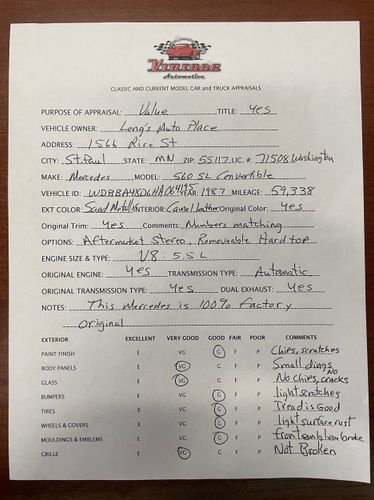 VINTAGE
Automotive
CLASSIC AND CURRENT MODEL CAR and TRUCK APPRAISALS
PURPOSE OF APPRAISAL: Value TITLE: yes
VEHICLE OWNER: Long's Auto Place
ADDRESS: 1566 Rice St
CITY: St. Paul STATE: MN ZIP: 55117 LIC. #: 71508 Washington
MAKE: Mercedes MODEL: 560 SL Convertible
VEHICLE ID: YEAR: 1987 MILEAGE: 59,338
EXT COLOR: Sand Metallic INTERIOR: Camel Leather Original Color: yes
Original Trim: yes Comments: Numbers matching
OPTIONS: Aftermarket Stereo, Removeable Hard top
ENGINE SIZE & TYPE: V8 5.5 L
ORIGINAL ENGINE: yes TRANSMISSION TYPE: Automatic
ORIGINAL TRANSMISSION TYPE: yes DUAL EXHAUST: yes
NOTES: This Mercedes is 100% factory
original
EXTERIOR EXCELLENT VERY GOOD GOOD FAIR POOR COMMENTS
PAINT FINISH E VG G F P Chips, scratches
BODY PANELS E VG G F P Small dings
GLASS E VG G F P No chips, cracks
BUMPERS E VG G F P light scratches
TIRES E VG G F P Tread is Good
WHEELS & COVERS E VG G F P light surface rust
MOULDINGS & EMBLEMS E VG G F P front emblem broke
GRILLE E VG G F P Not Broken